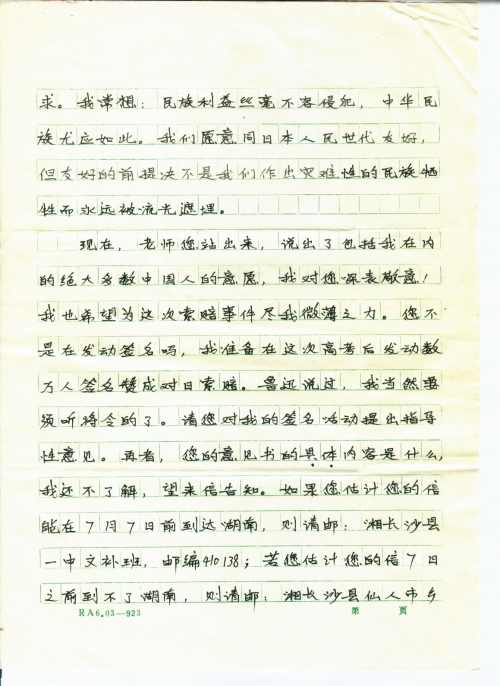 求。我常想：民族利益丝毫不容侵犯，中华民
族尤应如此。我们愿意同日本人民世代友好，
但友好的前提决不是我们作出灾难性的民族牺
牲而永远被流光遮埋。
现在，老师您站出来，说出了包括我在内
的绝大多数中国人的意愿，我对您深表敬意！
我也希望为这次索赔事件尽我微薄之力。您不
是在发动签名吗，我准备在这次高考后发动数
万人签名赞成对日索赔。鲁迅说过，我当然须
须听将令的了。请您对我的签名活动提出指导
性意见。再者，您的意见书的具体内容是什么，
我还不了解，望来信告知。如果您估计您的信
能在7月7日前到达湖南，则请邮：湘长沙县
一中文补班，邮编410138；若您估计您的信7日
之前到不了湖南，则请邮：湘长沙县仙人市乡
RA6.03—923 第 页